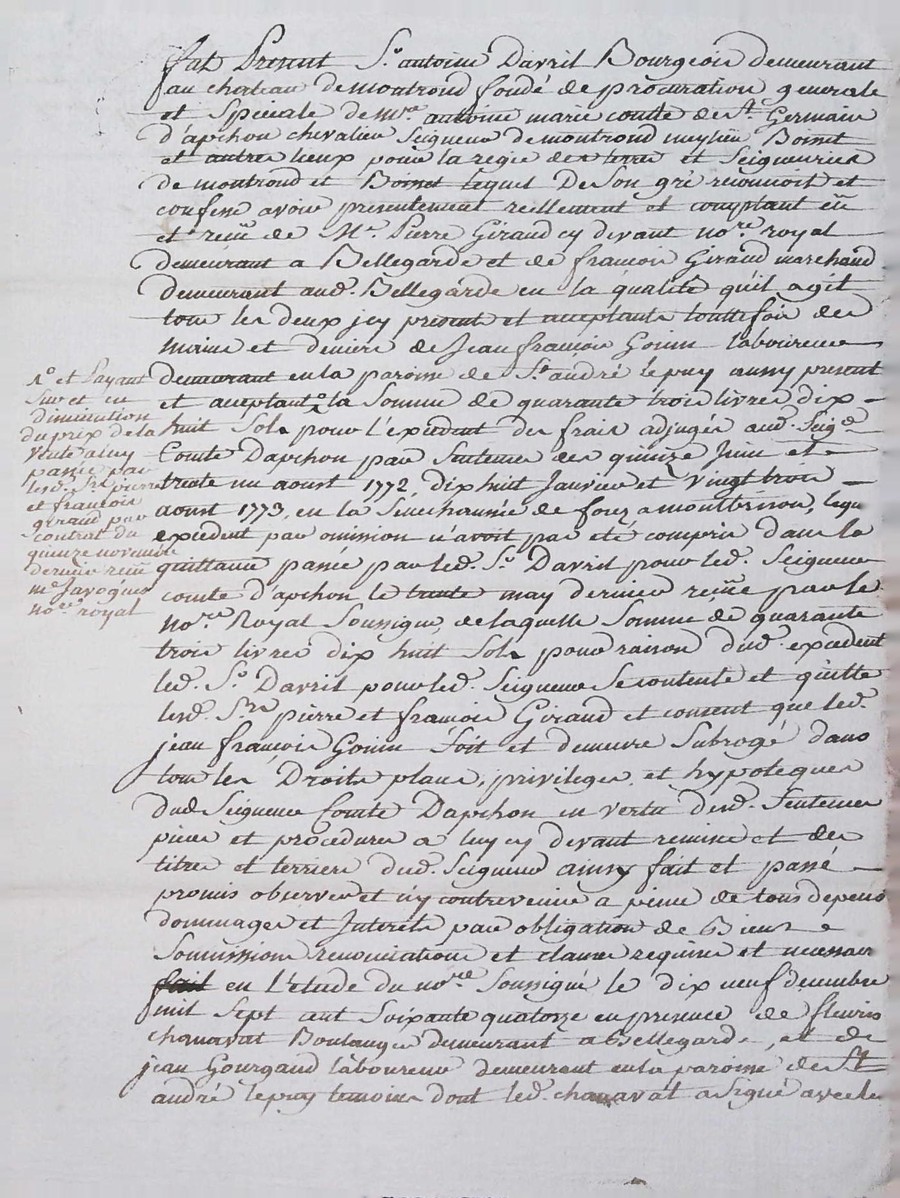 fut Present Sr. antoine Davril Bourgeois demeurant
au chateau de montrond fondé de procuration generale
et Spéciale de mre. antoine marie comte de St. Germain
d'apchon chevalier Seigneur de montrond meylieu Boisset
et autres lieux pour la regie des terres et Seigneuries
de montrond et Boisset lequel De Son gré reconnoit et
confesse avoir presentement reellement et comptant eû
et reçû de Me. Pierre Giraud cy devant nore. royal
demeurant a Bellegarde et de francois Giraud marchand
demeurant aud. Bellegarde en la qualité qu'il agit
tous les deux icy present et acceptants touttefois des
mains et deniers de Jean francois Gonin laboureur
demeurant en la paroisse de St. andré le puy aussy present
et acceptant la Somme de quarante trois livres dix
huit Sols pour l'excedent des frais adjugés aud. Seigr.
Comte Dapchon par Sentence des quinze Juin et
trente un aoust 1772, dix huit Janvier et Vingt trois
aoust 1773, en la Senechaussée de forez a montbrison, lequel
excedent par omission n'avoit pas eté compris dans la
quittance passée par led. Sr. Davril pour led. Seigneur
comte d'apchon le trente may dernier reçûe par le
nore. Royal Soussigné, de laquelle Somme de quarante
trois livres dix huit Sols pour raison dud. excedent
led. Sr. Davril pour led. Seigneur Se contente et quitte
lesd. Srs. pierre et francois Giraud et consent que led.
jean francois Gonin Soit et demeure Subrogé dans
tous les Droits place, privileges et hypoteques
dud Seigneur Comte Dapchon en vertu desd. Sentences
pieces et procedures a luy cy devant remises et des
titres et terriers dud. Seigneur ainsy fait et passé
promis observer et n'y contrevenir a peine de tous depens
dommages et Interets par obligation de Biens
Soumissions renonciations et clauses requises et necessaires
en l'etude du nore. Soussigné le dix neuf decembre
mil Sept cent Soixante quatorze en presence de fleury
chanavat Boulanger demeurant a Bellegarde, et de
jean Gourgaud laboureur demeurant en la paroisse de St
andré le puy temoins dont led. chanavat a Signé avec le
et Payant
Sur et en
diminution
du prix de la
Vente a luy
passée par
lesd. Srs. pierre
et francois
giraud par
contrat du
quinze novembre
dernier reçû
me Javogues
nore royal